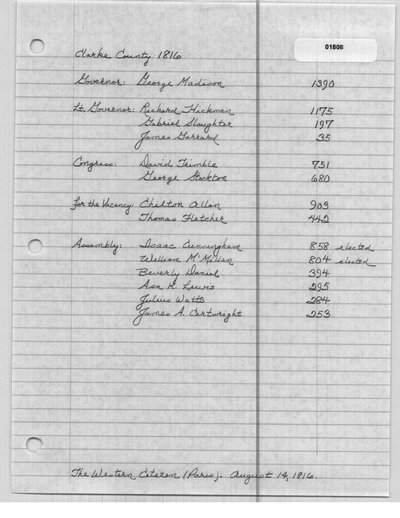 01808
Clarke County 1816
Governor: George Madison 1390
Lt. Governor: Richard Hickman 1175
Gabriel Slaughter 197
James Garrard 35
Congress: David Trimble 751
George Stockton 680
For the Vacancy: Chilton Allan 903
Thomas Fletcher 442
Assembly: Isaac Cunningham 858 elected
William McMillan 804 elected
Beverly Daniel 394
Asa K. Lewis 295
Julius Watts 284
James A. Cartwright 253
The Western Citizen (Paris). August 14, 1816.